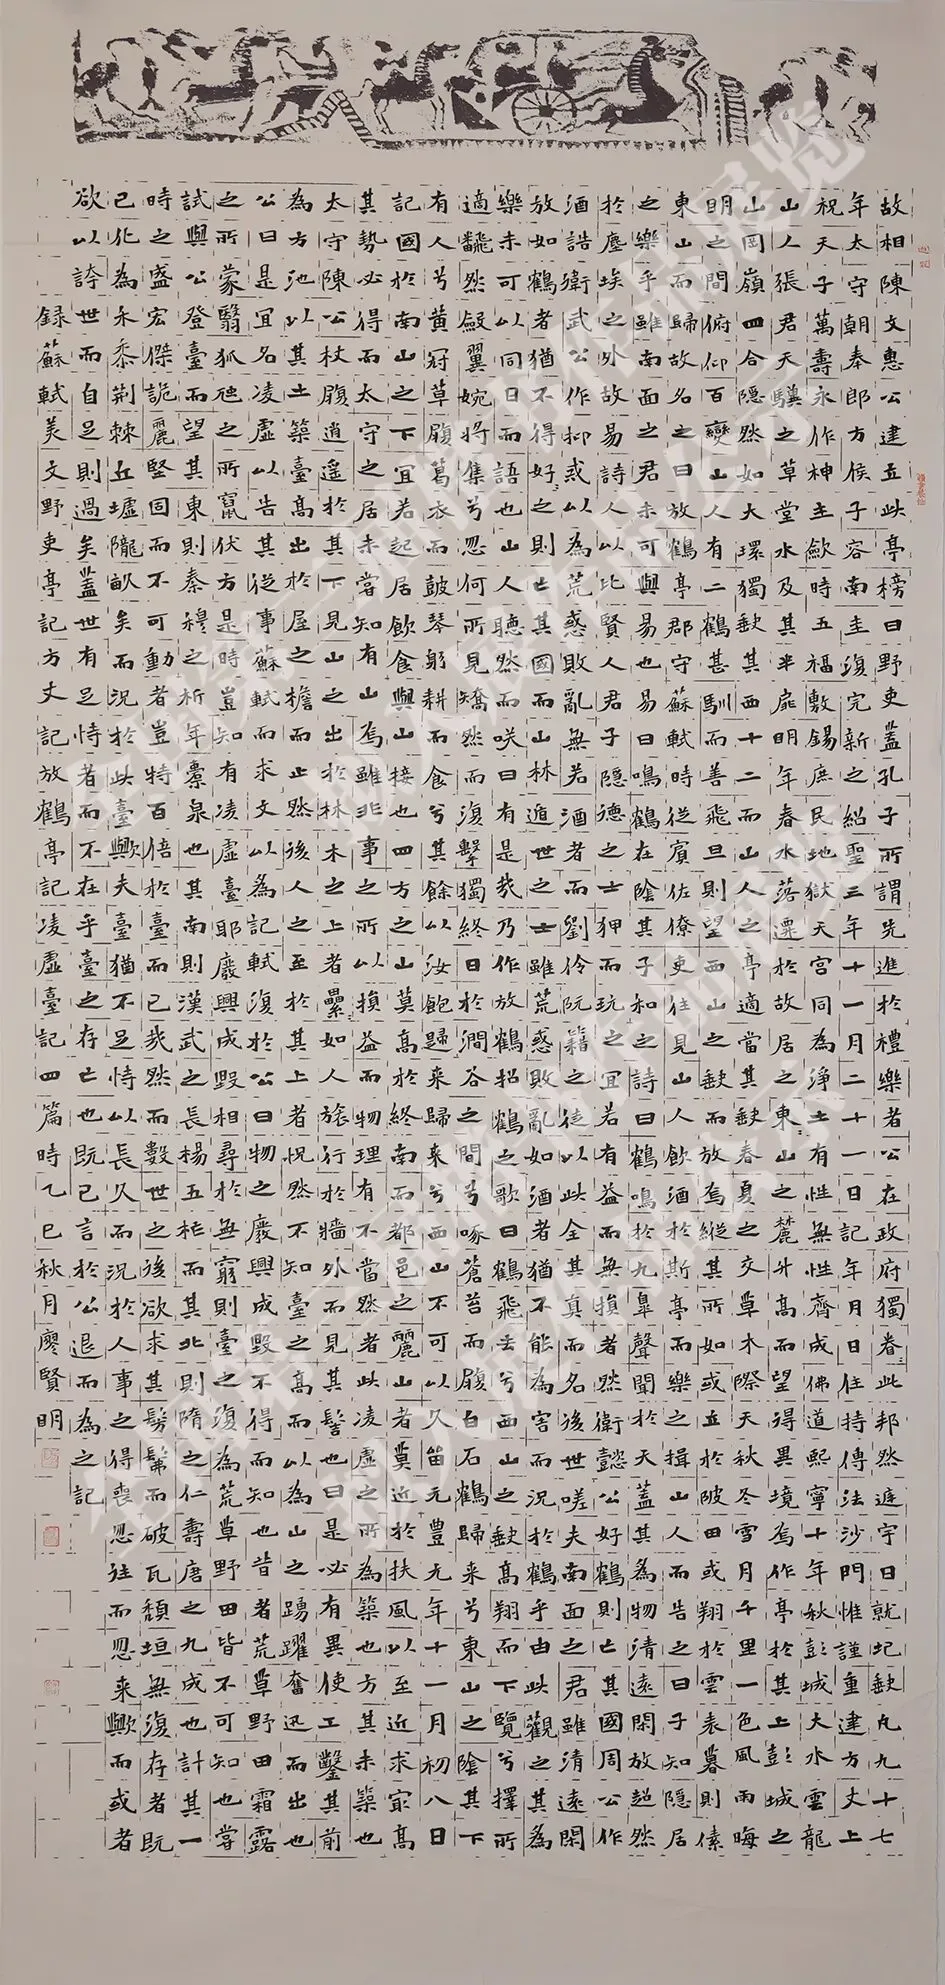 故相陳文惠公建立此亭榜曰野吏蓋孔子所謂先進於禮樂者公在政府獨眷眷此邦然遲宇日就圮缺凡九十七
年太守朝奉郎方侯子容南圭復完新之紹聖三年十一月二十一日記年月日住持傳法沙門惟謹重建方丈上
祝天子萬壽永作神主斂時五福敷錫庶民地獄天宮同為淨土有性無性齊成佛道熙寧十年秋彭城大水雲龍
山人張君天驥之草堂水及其半扉明年春水落遷於故居之東東山之麓升高而望得異境焉作亭於其上彭城之
山岡嶺四合隱然如大環獨缺其西十二而山人之亭適當其缺春夏之交草木際天秋冬雪月千里一色風雨晦
明之間俯仰百變山人有二鶴甚馴而善飛旦則望西山之缺而放焉縱其所如或立於陂田或翔於雲表暮則傃
東山而歸故名之曰放鶴亭郡守蘇軾時從賓佐僚吏往見山人飲酒於斯亭而樂之揖山人而告之曰子知隱居
之樂乎雖南面之君未可與易也易曰鳴鶴在陰其子和之詩曰鶴鳴於九皋聲聞於天蓋其為物清遠閑放超然
於塵埃之外故易詩人以比賢人君子隱德之士狎而玩之宜若有益而無損者然衛懿公好鶴則亡其國周公作
酒誥衛武公作抑戒以為荒惑敗亂無若酒者而劉伶阮籍之徒以此全其真而名後世嗟夫南面之君雖清遠閑
放如鶴者猶不得好好之則亡其國而山林遁世之士雖荒惑敗亂如酒者猶不能為害而況於鶴乎由此觀之其為
樂未可以同日而語也山人聽然而咲曰有是哉乃作放鶴招鶴之歌曰鶴飛去兮西山之缺高翔而下覽兮擇所
適翻然斂翼婉將集兮忽何所見矯然而復擊獨終日於澗谷之間兮啄蒼苔而履白石鶴歸來兮東山之陰其下
有人兮黃冠草屨葛衣而鼓琴躬耕而食兮其餘以汝飽歸來歸來兮西山不可以久留元豐元年十一月初八日
記國於南山之下宜若起居飲食與山接也四方之山莫高於終南而都邑之麗山者莫近於扶風以至近求最高
其勢必得而太守之居未嘗知有山焉雖非事之所以損益而物理有不當然者此凌虛之所為築也方其未築也
太守陳公杖屨逍遙於其下見山之出於林木之上者纍纍如人旅行於牆外而見其髻也曰是必有異使工鑿其前
為方池以其土築臺高出於屋之檐而止然後人之至於其上者怳然不知臺之高而以為山之踴躍奮迅而出也
公曰是宜名凌虛以告其從事蘇軾而求文以為記軾復於公曰物之廢興成毀不得而知也昔者荒草野田霜露
之所蒙翳狐虺之所竄伏方是時豈知有凌虛臺耶廢興成毀相尋於無窮則臺之復為荒草野田皆不可知也嘗
試與公登臺而望其東則秦穆之祈年橐泉也其南則漢武之長楊五柞而其北則隋之仁壽唐之九成也計其一
時之盛宏傑詭麗堅固而不可動者豈特百倍於臺而已哉然而數世之後欲求其髣髴而破瓦頹垣無復存者既
已化為禾黍荊棘丘墟隴畝矣而況於此臺歟夫臺猶不足恃以長久而況於人事之得喪忽往而忽來歟而或者
欲以誇世而自足則過矣蓋世有足恃者而不在乎臺之存亡也既已言於公退而為之記
録蘇軾美文野吏亭記方丈記放鶴亭記凌虛臺記四篇時乙巳秋月廖賢明